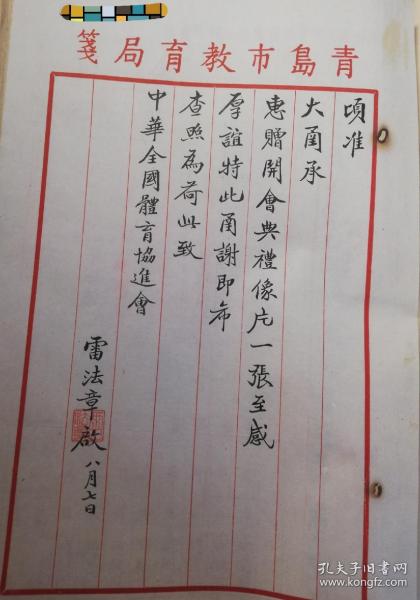 青島市教育局箋
頃准
大函承
惠贈開會典禮像片一張至感
厚誼特此函謝即希
查照為荷此致
中華全國體育協進會
雷法章啟 八月七日
孔夫子旧书网
www.kongfz.com